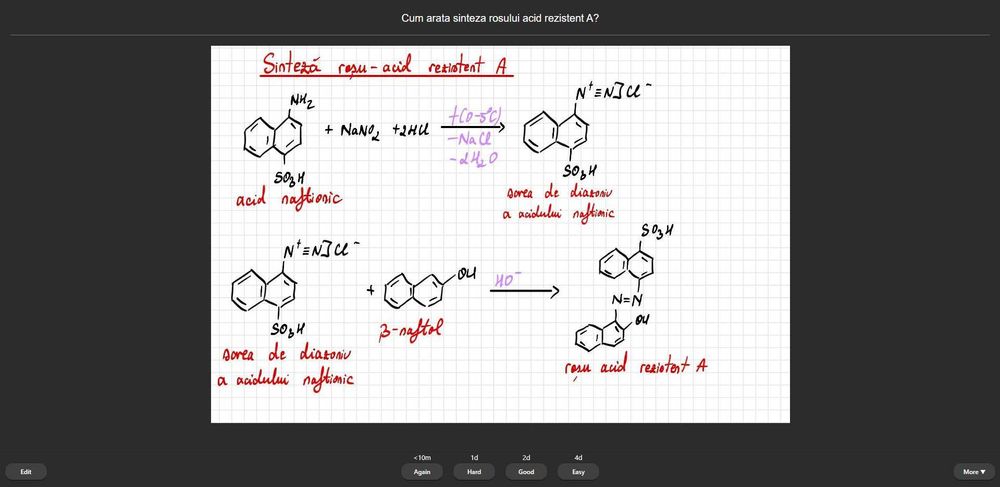 Cum arata sinteza rosului acid rezistent A?
Sinteză roșu-acid rezistent A
NH2
+ NaNO2 + 2HCl
t(0-5°C)
-NaCl
-2H2O
N+≡N]Cl-
SO3H
acid naftionic
SO3H
sarea de diazoniu
a acidului naftionic
N+≡N]Cl-
SO3H
sarea de diazoniu
a acidului naftionic
+
OH
β-naftol
HO-
SO3H
N=N
OH
roșu acid rezistent A
<10m 1d 2d 4d
Edit Again Hard Good Easy More ▼